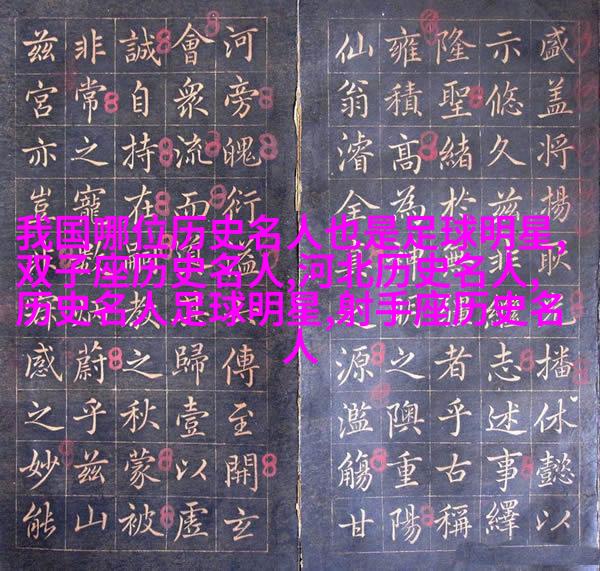 我国哪位历史名人也是足球明星,
双子座历史名人,河北历史名人,
历史名人足球明星,射手座历史名
人
盛盖将揚耿播休懿以
示悠久兹志述事繹
隆聖緒於無者乎古稱
雍積高為神之隩重陽
仙翁濬全真源濫觴甘
河旁魄衍益傳至開玄
會衆流而歸壹以虛
誠自持在教之秋蒙被
非常之寵數蔚乎兹山
兹宮亦豈感之妙能